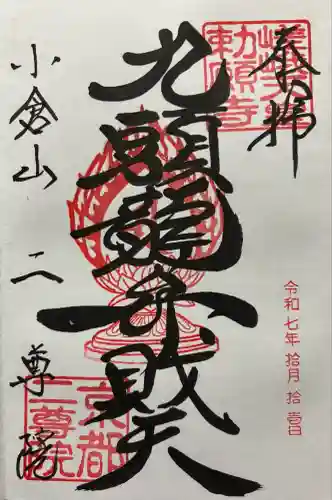 奉拝
嵯峨天皇
勅願寺
九頭龍弁財天
令和七年 拾月 拾壱日
小倉山 二尊院
京都
二尊院